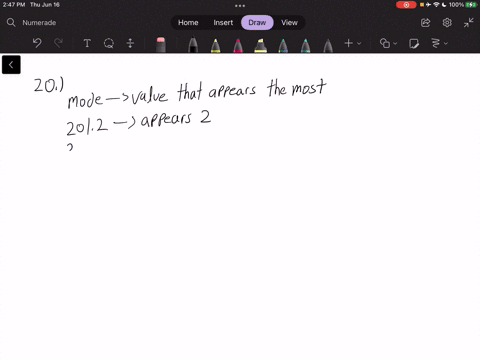 2:47 PM Thu Jun 16
100%
Numerade
Home Insert Draw View
20.)
mode —> value that appears the most
201.2 —> appears 2